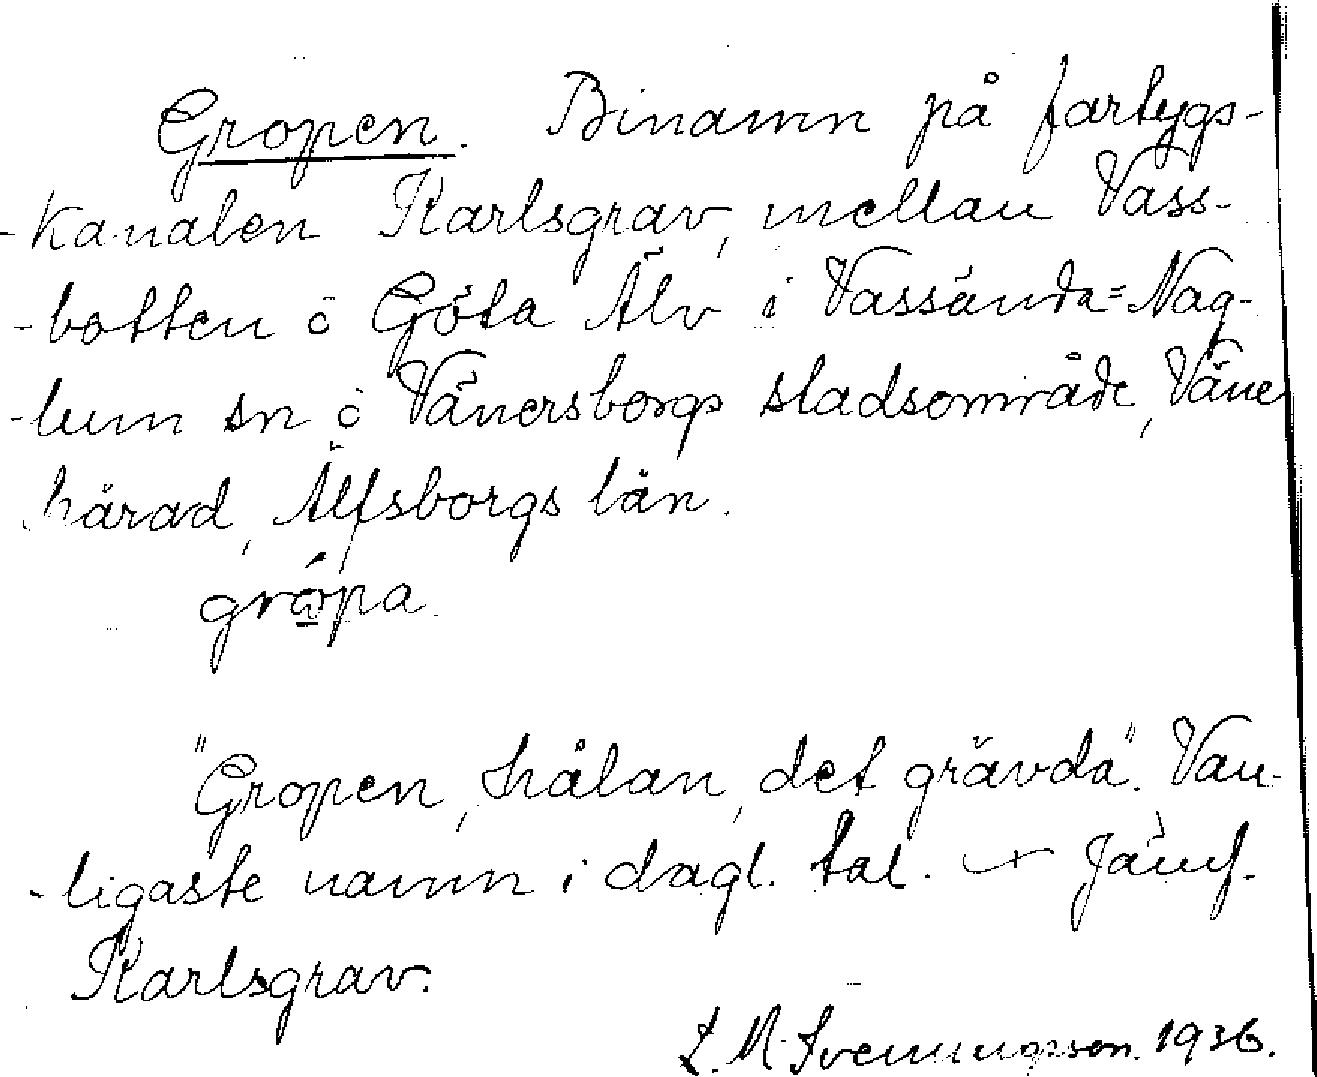 Gropen. Binamn på fartygs-
-kanalen Karlsgrav, mellan Vass-
-botten o Göta Älv i Vassända=Nag-
-lum sn o Vänersborgs stadsområde, Väne
härad, Älfsborgs län.
grópa.
"Gropen, hålan, det grävda". Van-
-ligaste namn i dagl. tal. — Jämf.
Karlsgrav.
L. M. Svenungsson. 1936.